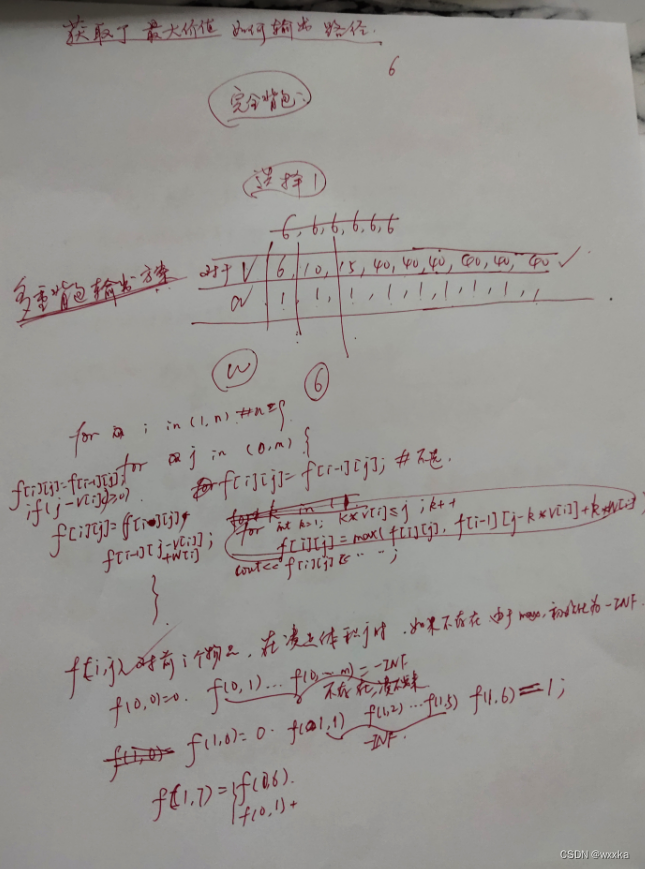 获取了最大价值如何输出路径.
6
完全背包:
选择1
6, 6, 6, 6, 6, 6
对于V 6, 10, 15, 40, 40, 40, 40, 40, 40 ✓
多重背包输出方案
W 1, 1, 1, 1, 1, 1, 1, 1, 1
W 6
for i in (1, n)
for j in (0, m) {
f[i][j]=f[i-1][j]; f[i][j]= f[i-1][j]; #不选.
if(j-v[i]>=0)
f[i][j]=
for int k=1; k*v[i]≤j; k++
f[i-1][j-v[i]]+w[i]; f[i][j]= max(f[i][j], f[i-1][j-k*v[i]]+k*w[i])
cout<< f[i][j]
}
f(i,j) 对前i个物品, 在凑上体积j时, 如果不存在由于max, 初始化为-INF.
f(0,0)=0. f(0,1)...f(0,m)=-INF
不存在,凑不出来
f(1,0)= f(1,0)=0. f(1,1) f(1,2)...f(1,5) f(1,6)=1;
-INF.
f(1,7)= f(0,6).
f(0,1)+
CSDN @wxxka